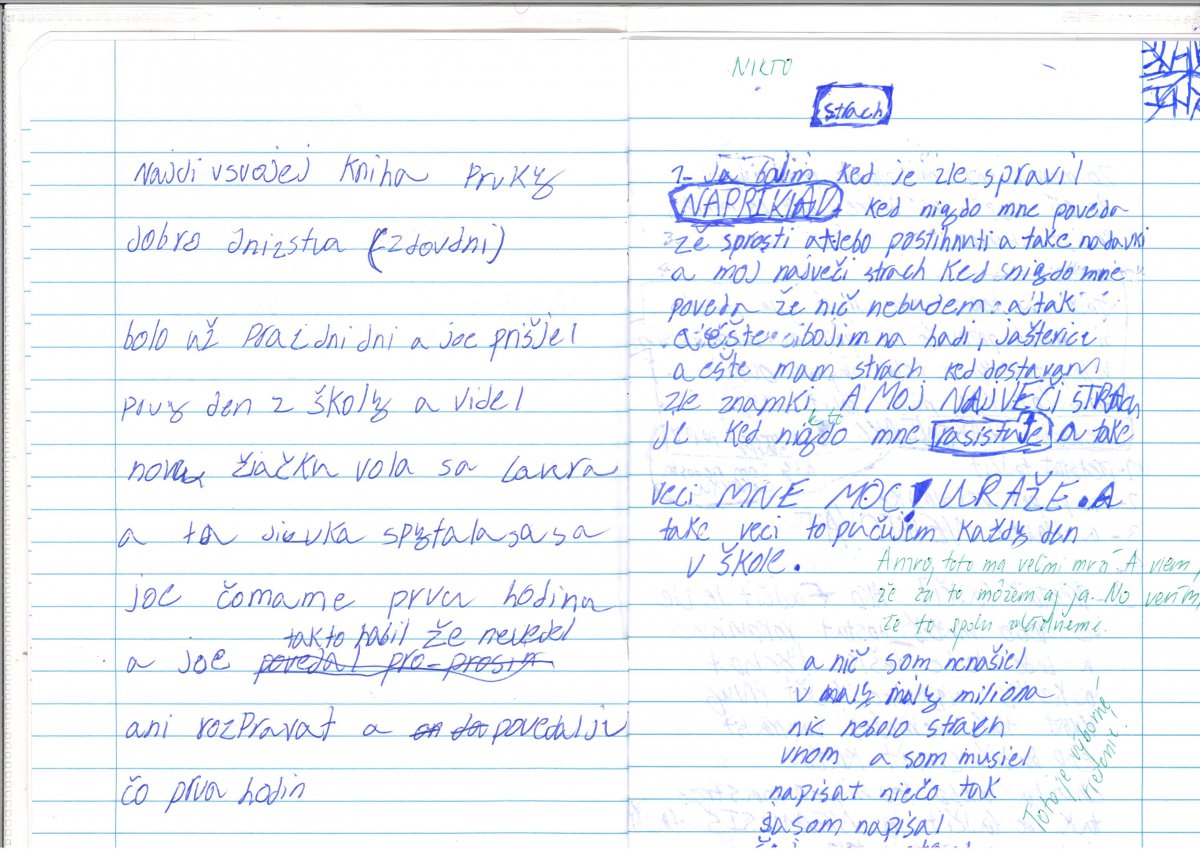 Najdi vsvojej Kniha prvky
dobro
bolo už prazdnidni a joe prišjel
prvy den z školy a videl
novu žiačku vola sa Laura
a ta dievka spytala sa sa
joe čomame prvu hodina
takto habil že nevedel
a joe povedal pro-prosin
ani rozpravat a povedalju
čo prva hodin
NIKTO
strach
1- ja bojim ked je zle spravil
NAPRIKLAD ked nigdo mne poveda
že sprosti alebo postihnuti a take nadavki
a moj največi strach ked snigdo mne
poveda že nič nebudem. a tak
a ešte cibojim na hadi, jašterice
a ešte mam strach ked dostavam
zle znamki. A MOJ NAJVEČI STRAch
je ked nigdo mne rasistuje a take
veci MNE MOC! URAŽE. A
take veci to pučujem každy den
v škole.
toto ma veľmi mrzí. A viem,
že za to môžem aj ja. No verím,
že to spolu
a nič som nenašiel
v maly maly miliona
nic nebolo strach
vnom a som musiel
napisat niečo tak
jasom napisal
Toto je výborné
riešenie!